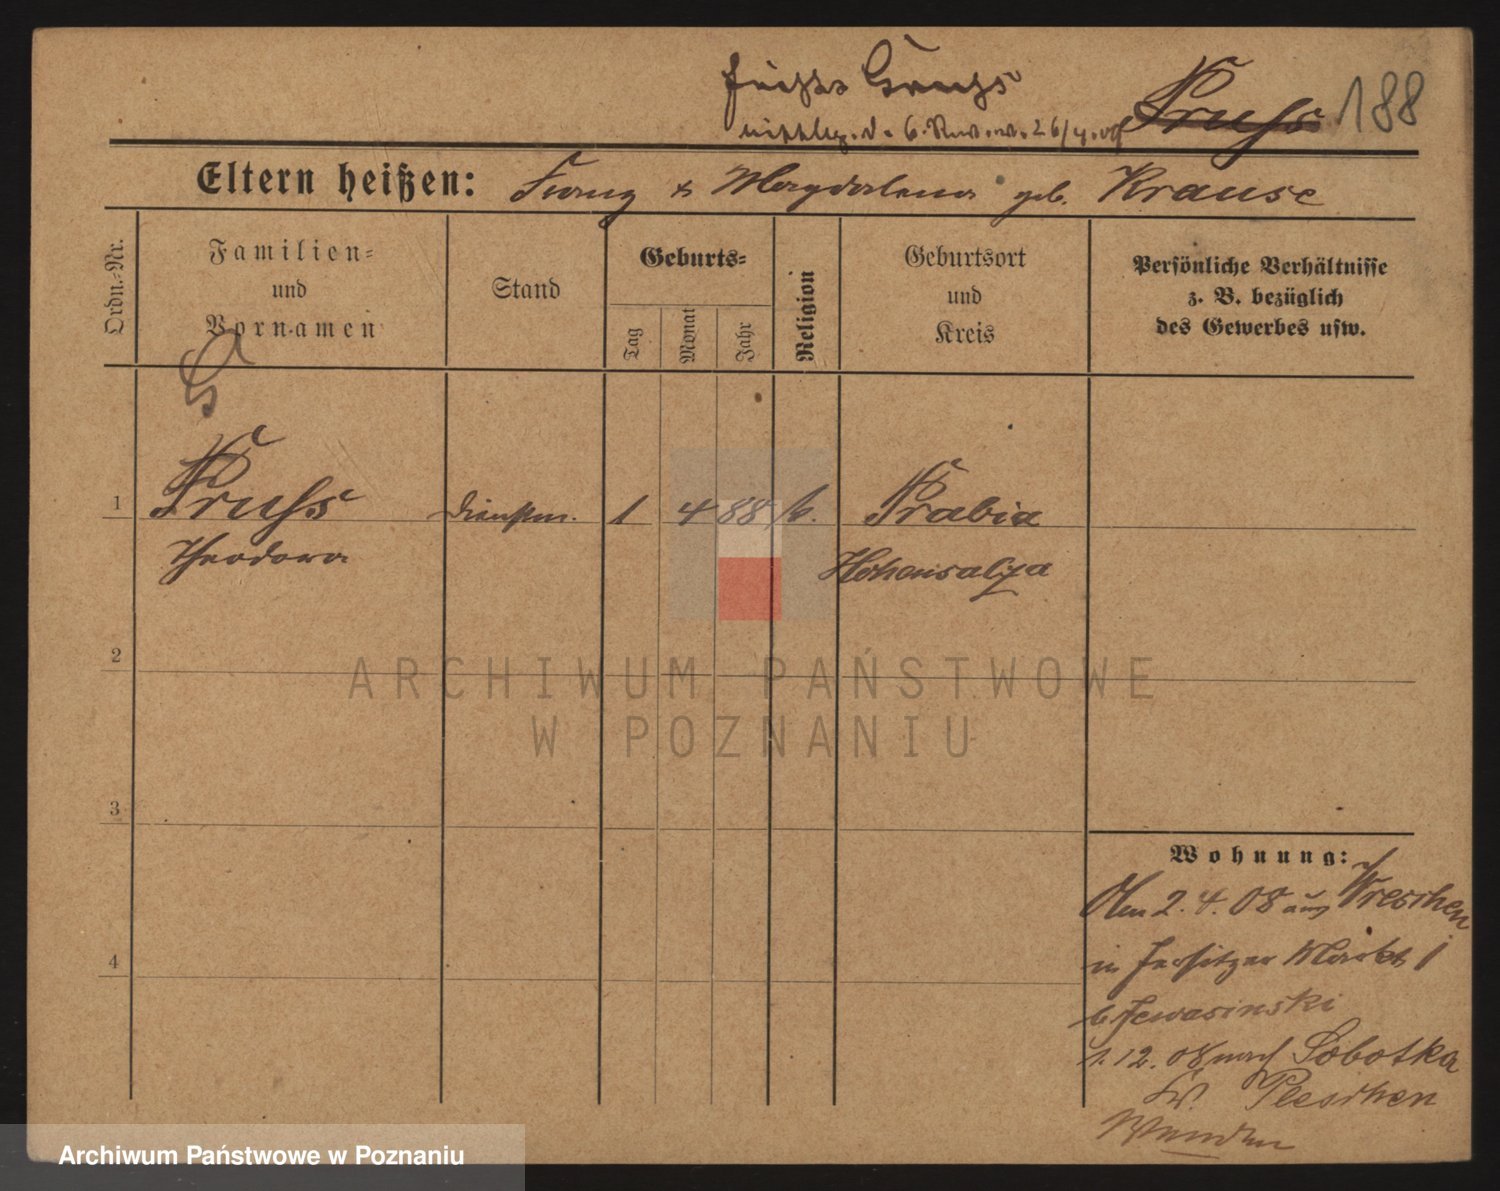 188
Pruss
d. 6. Rev. v. 26/4. 09
Eltern heißen: Franz & Magdalena geb. Krause
Ordn.-Nr.
Familien-
und
Vornamen
Stand
Geburts-
Tag
Monat
Jahr
Religion
Geburtsort
und
Kreis
Persönliche Verhältnisse
z. B. bezüglich
des Gewerbes usw.
G
1 Pruss Dienstm. 1 4 88 k. Prabia
Theodora Hohensalza
2
3
4
Wohnung:
Am 2. 4. 08 aus Wreschen
in Jersitzer Markt 1
b Jewasinski
1. 12. 08 nach Sobotka
Kr. Pleschen
Wenden
ARCHIWUM PAŃSTWOWE
W POZNANIU
Archiwum Państwowe w Poznaniu